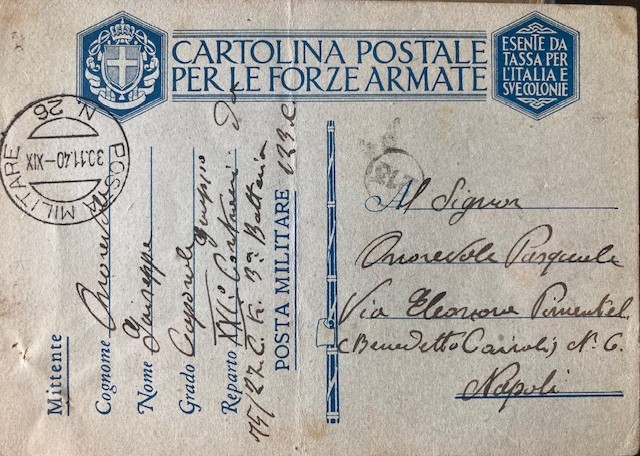 CARTOLINA POSTALE
PER LE FORZE ARMATE
ESENTE DA
TASSA PER
L'ITALIA E
SVE COLONIE
POSTA MILITARE
N. 26
30.11.40-XIX
Mittente
Cognome Onorevole
Nome Giuseppe
Grado Caporale
Reparto XXI° Gruppo
75/27 C. K. 3ª Batteria
POSTA MILITARE 123.C
Al Signor
Onorevole Pasquale
Via Eleonora Pimentel
(Benedetto Cairoli) N. 6
Napoli